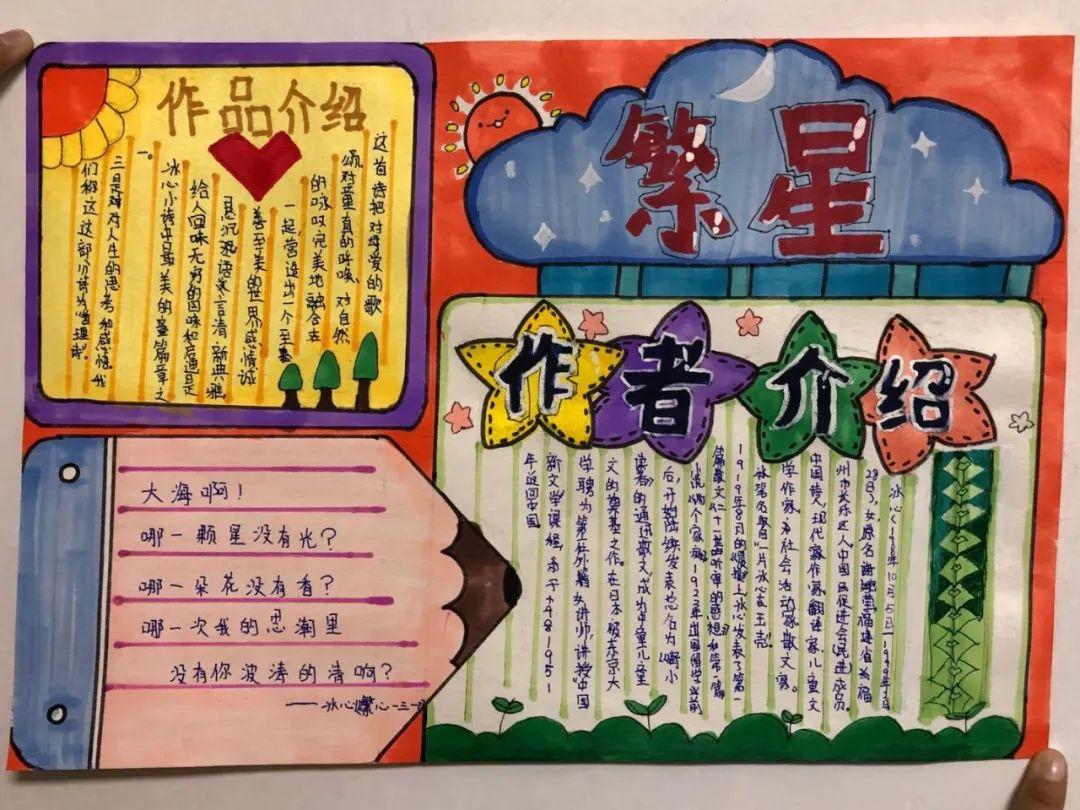 作品介绍
这首诗把对母爱的歌
颂,对童真的呼唤,对自然
的咏叹完美地融合在
一起,营造出一个至
善至美的世界。感情诚
恳沉
语言清新典雅,
给人回味无穷的回味和启迪是
冰心小诗中最美的
篇章之
一。
三是对对人生的思考和感悟。我
们称这这部分诗为
繁星
作者介绍
冰心(
年10月5日—1999年2月
28日),女,原名谢婉莹,福建省
福
州市长乐区人,中国民
促进会(民进)成员。
中国诗人,现代
作家,翻译家,儿童文
学作家,
社会活动家,散文家。
冰
名取自“一片冰心在玉壶”。
1919年8月的《
》上,冰心发表了第一
篇散文《二十一
听
的感想》和第一篇
小说《
个家
》。1923年出国留学
前
后,开始陆续发表总名为《寄小
读者》的通讯散文,成为中
儿童
文的奠基之作。在日本被东京大
学聘为第
外籍女讲师,讲授“中国
新文学”课程,
1951
年返回中国
大海啊!
哪一颗星没有光?
哪一朵花没有香?
哪一次我的思潮里
没有你波涛的清
啊?
——冰心繁
一三一